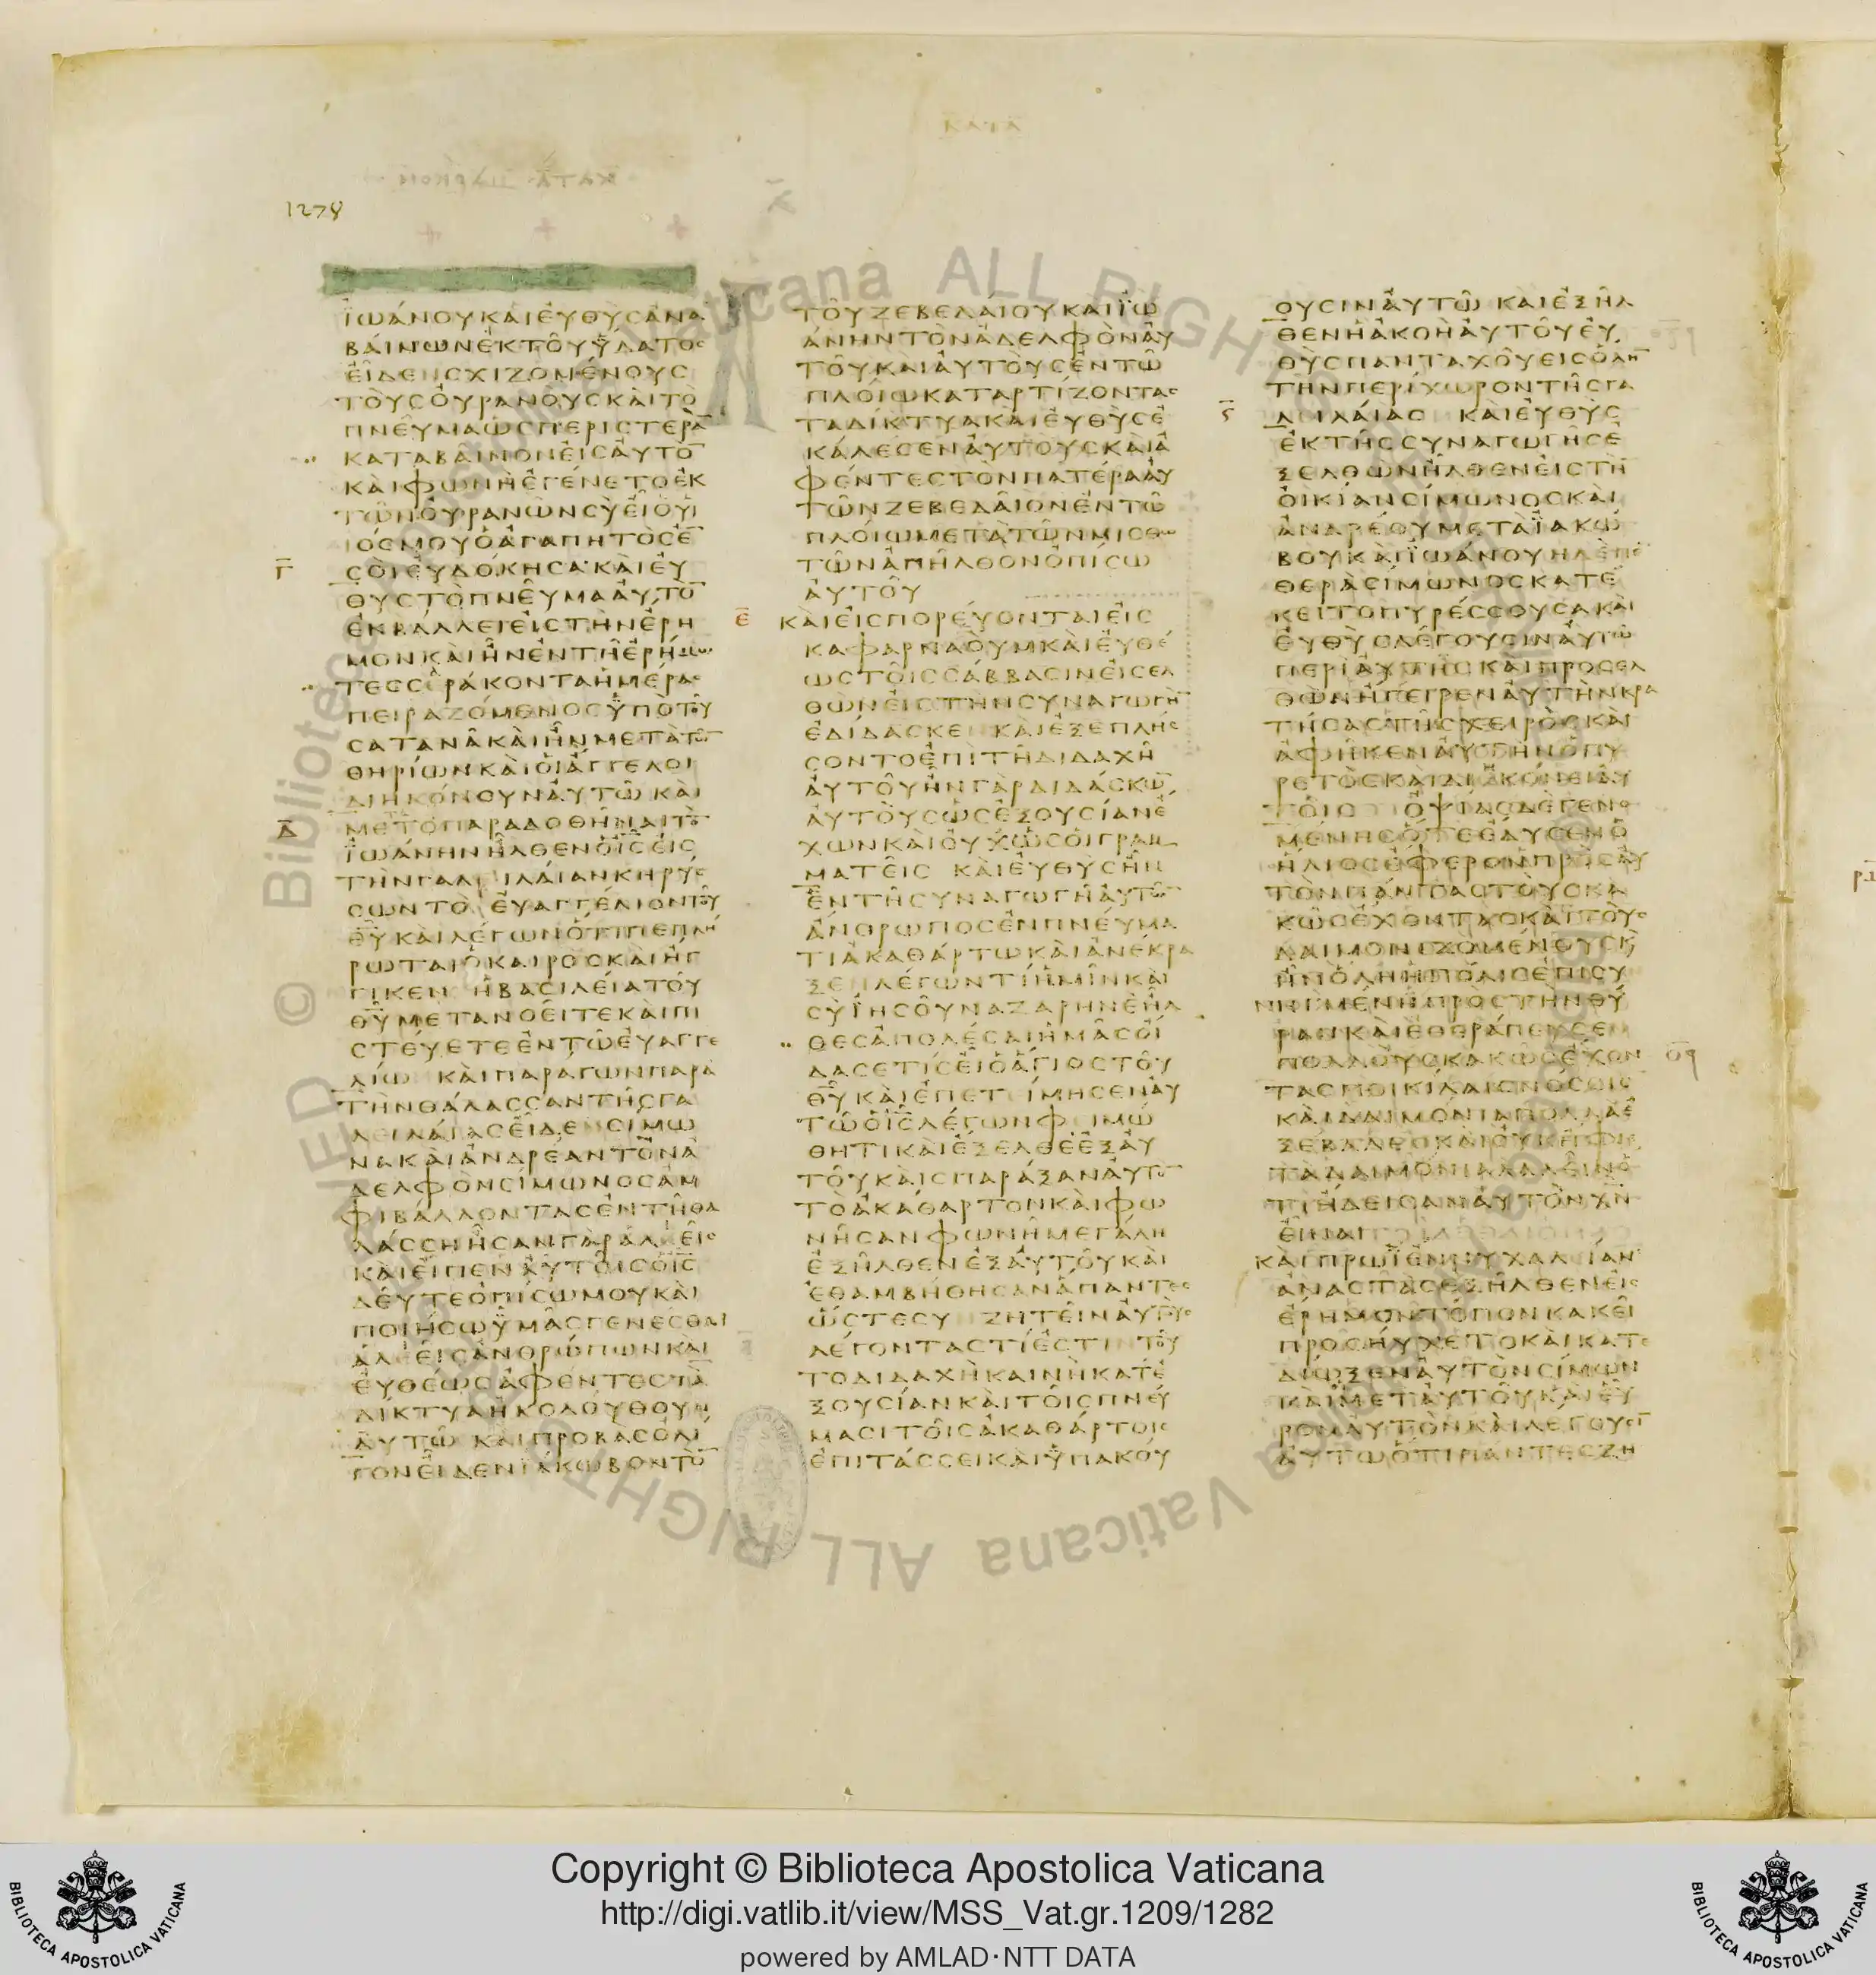 ΚΑΤΑ
1278
ΙΩΑΝΟΥΚΑΙΕΥΘΥΣΑΝΑ
ΒΑΙΝΩΝΕΚΤΟΥΥΔΑΤΟΣ
ΕΙΔΕΝΣΧΙΖΟΜΕΝΟΥΣ
ΤΟΥΣΟΥΡΑΝΟΥΣΚΑΙΤΟ
ΠΝΕΥΜΑΩΣΠΕΡΙΣΤΕΡΑ̅
ΚΑΤΑΒΑΙΝΟΝΕΙΣΑΥΤΟ̅
ΚΑΙΦΩΝΗΕΓΕΝΕΤΟΕΚ
ΤΩΝΟΥΡΑΝΩΝΣΥΕΙΟΥΙ
ΟΣΜΟΥΟΑΓΑΠΗΤΟΣΕ̅
Γ̅
ΣΟΙΕΥΔΟΚΗΣΑΚΑΙΕΥ
ΘΥΣΤΟΠΝΕΥΜΑΑΥΤΟ̅
ΕΚΒΑΛΛΕΙΕΙΣΤΗΝΕΡΗ
ΜΟΝΚΑΙΗΝΕΝΤΗΕΡΗΜΩ
ΤΕΣΣΕΡΑΚΟΝΤΑΗΜΕΡΑΣ
ΠΕΙΡΑΖΟΜΕΝΟΣΥΠΟΤΟΥ
ΣΑΤΑΝΑΚΑΙΗΝΜΕΤΑΤΩ̅
ΘΗΡΙΩΝΚΑΙΟΙΑΓΓΕΛΟΙ
ΔΙΗΚΟΝΟΥΝΑΥΤΩ ΚΑΙ
Δ̅
ΜΕΤΟΠΑΡΑΔΟΘΗΝΑΙΤΟ̅
ΙΩΑΝΗΝΗΛΘΕΝΟΙ̅Σ̅ΕΙΣ
ΤΗΝΓΑΛΕΙΛΑΙΑΝΚΗΡΥΣ
ΣΩΝΤΟ ΕΥΑΓΓΕΛΙΟΝΤΟΥ
Θ̅Υ̅ΚΑΙΛΕΓΩΝΟΤΙΠΕΠΛΗ
ΡΩΤΑΙΟΚΑΙΡΟΣΚΑΙΗΓ
ΓΙΚΕΝ ΗΒΑΣΙΛΕΙΑΤΟΥ
Θ̅Υ̅ΜΕΤΑΝΟΕΙΤΕΚΑΙΠΙ
ΣΤΕΥΕΤΕΕΝΤΩΕΥΑΓΓΕ
ΛΙΩ ΚΑΙΠΑΡΑΓΩΝΠΑΡΑ
ΤΗΝΘΑΛΑΣΣΑΝΤΗΣΓΑ
ΛΕΙΛΑΙΑΣΕΙΔΕΝΣΙΜΩ
ΝΑΚΑΙΑΝΔΡΕΑΝΤΟΝΑ
ΔΕΛΦΟΝΣΙΜΩΝΟΣΑΜ
ΦΙΒΑΛΛΟΝΤΑΣΕΝΤΗΘΑ
ΛΑΣΣΗΗΣΑΝΓΑΡΑΛΕΕΙΣ
ΚΑΙΕΙΠΕΝΑΥΤΟΙΣΟΙ̅Σ̅
ΔΕΥΤΕΟΠΙΣΩΜΟΥΚΑΙ
ΠΟΙΗΣΩΥΜΑΣΓΕΝΕΣΘΑΙ
ΑΛΕΕΙΣΑΝΘΡΩΠΩΝΚΑΙ
ΕΥΘΕΩΣΑΦΕΝΤΕΣΤΑ
ΔΙΚΤΥΑΗΚΟΛΟΥΘΟΥΝ
ΑΥΤΩ ΚΑΙΠΡΟΒΑΣΟΛΙ
ΓΟΝΕΙΔΕΝΙΑΚΩΒΟΝΤΟ̅
ΤΟΥΖΕΒΕΔΑΙΟΥΚΑΙΙΩ
ΑΝΗΝΤΟΝΑΔΕΛΦΟΝΑΥ
ΤΟΥΚΑΙΑΥΤΟΥΣΕΝΤΩ
ΠΛΟΙΩΚΑΤΑΡΤΙΖΟΝΤΑΣ
ΤΑΔΙΚΤΥΑΚΑΙΕΥΘΥΣΕ
ΚΑΛΕΣΕΝΑΥΤΟΥΣΚΑΙΑ
ΦΕΝΤΕΣΤΟΝΠΑΤΕΡΑΑΥ
ΤΩΝΖΕΒΕΔΑΙΟΝΕΝΤΩ
ΠΛΟΙΩΜΕΤΑΤΩΝΜΙΣΘΩ
ΤΩΝΑΠΗΛΘΟΝΟΠΙΣΩ
ΑΥΤΟΥ
Ε̅
ΚΑΙΕΙΣΠΟΡΕΥΟΝΤΑΙΕΙΣ
ΚΑΦΑΡΝΑΟΥΜΚΑΙΕΥΘΕ
ΩΣΤΟΙΣΣΑΒΒΑΣΙΝΕΙΣΕΛ
ΘΩΝΕΙΣΤΗΝΣΥΝΑΓΩΓΗ̅
ΕΔΙΔΑΣΚΕ ΚΑΙΕΞΕΠΛΗΣ
ΣΟΝΤΟΕΠΙΤΗΔΙΔΑΧΗ
ΑΥΤΟΥΗΝΓΑΡΔΙΔΑΣΚΩ̅
ΑΥΤΟΥΣΩΣΕΞΟΥΣΙΑΝΕ
ΧΩΝΚΑΙΟΥΧΩΣΟΙΓΡΑΜ
ΜΑΤΕΙΣ ΚΑΙΕΥΘΥΣΗΝ
ΕΝΤΗΣΥΝΑΓΩΓΗΑΥΤΩ̅
ΑΝΘΡΩΠΟΣΕΝΠΝΕΥΜΑ
ΤΙΑΚΑΘΑΡΤΩΚΑΙΑΝΕΚΡΑ
ΞΕΝΛΕΓΩΝΤΙΗΜΙΝΚΑΙ
ΣΥΙΗΣΟΥΝΑΖΑΡΗΝΕΗΛ
ΘΕΣΑΠΟΛΕΣΑΙΗΜΑΣΟΙ
ΔΑΣΕΤΙΣΕΙΟΑΓΙΟΣΤΟΥ
Θ̅Υ̅ΚΑΙΕΠΕΤΕΙΜΗΣΕΝΑΥ
ΤΩΟΙ̅Σ̅ΛΕΓΩΝΦΕΙΜΩ
ΘΗΤΙΚΑΙΕΞΕΛΘΕΕΞΑΥ
ΤΟΥΚΑΙΣΠΑΡΑΞΑΝΑΥΤΟ̅
ΤΟΑΚΑΘΑΡΤΟΝΚΑΙΦΩ
ΝΗΣΑΝΦΩΝΗΜΕΓΑΛΗ
ΕΞΗΛΘΕΝΕΞΑΥΤΟΥΚΑΙ
ΕΘΑΜΒΗΘΗΣΑΝΑΠΑΝΤΕΣ
ΩΣΤΕΣΥΝΖΗΤΕΙΝΑΥΤΟΥΣ
ΛΕΓΟΝΤΑΣΤΙΕΣΤΙΝΤΟΥ
ΤΟΔΙΔΑΧΗΚΑΙΝΗΚΑΤΕ
ΞΟΥΣΙΑΝΚΑΙΤΟΙΣΠΝΕΥ
ΜΑΣΙΤΟΙΣΑΚΑΘΑΡΤΟΙΣ
ΕΠΙΤΑΣΣΕΙΚΑΙΥΠΑΚΟΥ
ΟΥΣΙΝΑΥΤΩ ΚΑΙΕΞΗΛ
ΘΕΝΗΑΚΟΗΑΥΤΟΥΕΥ
ΘΥΣΠΑΝΤΑΧΟΥΕΙΣΟΛΗ̅
ΤΗΝΠΕΡΙΧΩΡΟΝΤΗΣΓΑ
Ϛ̅
ΛΕΙΛΑΙΑΣ ΚΑΙΕΥΘΥΣ
ΕΚΤΗΣΣΥΝΑΓΩΓΗΣΕ
ΞΕΛΘΩΝΗΛΘΕΝΕΙΣΤΗ̅
ΟΙΚΙΑΝΣΙΜΩΝΟΣΚΑΙ
ΑΝΔΡΕΟΥΜΕΤΑΙΑΚΩ
ΒΟΥΚΑΙΙΩΑΝΟΥΗΔΕΠΕ̅
ΘΕΡΑΣΙΜΩΝΟΣΚΑΤΕ
ΚΕΙΤΟΠΥΡΕΣΣΟΥΣΑΚΑΙ
ΕΥΘΥΣΛΕΓΟΥΣΙΝΑΥΤΩ
ΠΕΡΙΑΥΤΗΣΚΑΙΠΡΟΣΕΛ
ΘΩΝΗΓΕΙΡΕΝΑΥΤΗΝΚΡΑ
ΤΗΣΑΣΤΗΣΧΕΙΡΟΣΚΑΙ
ΑΦΗΚΕΝΑΥΤΗΝΟΠΥ
ΡΕΤΟΣΚΑΙΔΙΗΚΟΝΕΙΑΥ
ΤΟΙΣ ΟΨΙΑΣΔΕΓΕΝΟ
ΜΕΝΗΣΟΤΕΕΔΥΣΕΝΟ
ΗΛΙΟΣΕΦΕΡΟΝΠΡΟΣΑΥ
ΤΟΝΠΑΝΤΑΣΤΟΥΣΚΑ
ΚΩΣΕΧΟΝΤΑΣΚΑΙΤΟΥΣ
ΔΑΙΜΟΝΙΖΟΜΕΝΟΥΣΚ
ΗΝΟΛΗΗΠΟΛΙΣΕΠΙΣΥ
ΝΗΓΜΕΝΗΠΡΟΣΤΗΝΘΥ
ΡΑΝΚΑΙΕΘΕΡΑΠΕΥΣΕΝ
ΠΟΛΛΟΥΣΚΑΚΩΣΕΧΟΝ
ΤΑΣΠΟΙΚΙΛΑΙΣΝΟΣΟΙΣ
ΚΑΙΔΑΙΜΟΝΙΑΠΟΛΛΑΕ
ΞΕΒΑΛΕΝΚΑΙΟΥΚΗΦΙΕ
ΤΑΔΑΙΜΟΝΙΑΛΑΛΕΙΝΟ
ΤΙΗΔΕΙΣΑΝΑΥΤΟΝΧ̅Ν̅
ΕΙΝΑΙ
ΚΑΙΠΡΩΙΕΝΝΥΧΑΛΕΙΑΝ
ΑΝΑΣΤΑΣΕΞΗΛΘΕΝΕΙΣ
ΕΡΗΜΟΝΤΟΠΟΝΚΑΚΕΙ
ΠΡΟΣΗΥΧΕΤΟΚΑΙΚΑΤΕ
ΔΙΩΞΕΝΑΥΤΟΝΣΙΜΩΝ
ΚΑΙΟΙΜΕΤΑΥΤΟΥΚΑΙΕΥ
ΡΟΝΑΥΤΟΝΚΑΙΛΕΓΟΥΣΙ̅
ΑΥΤΩΟΤΙΠΑΝΤΕΣΖΗ
Copyright © Biblioteca Apostolica Vaticana
http://digi.vatlib.it/view/MSS_Vat.gr.1209/1282
powered by AMLAD·NTT DATA
BIBLIOTECA APOSTOLICA VATICANA
BIBLIOTECA APOSTOLICA VATICANA